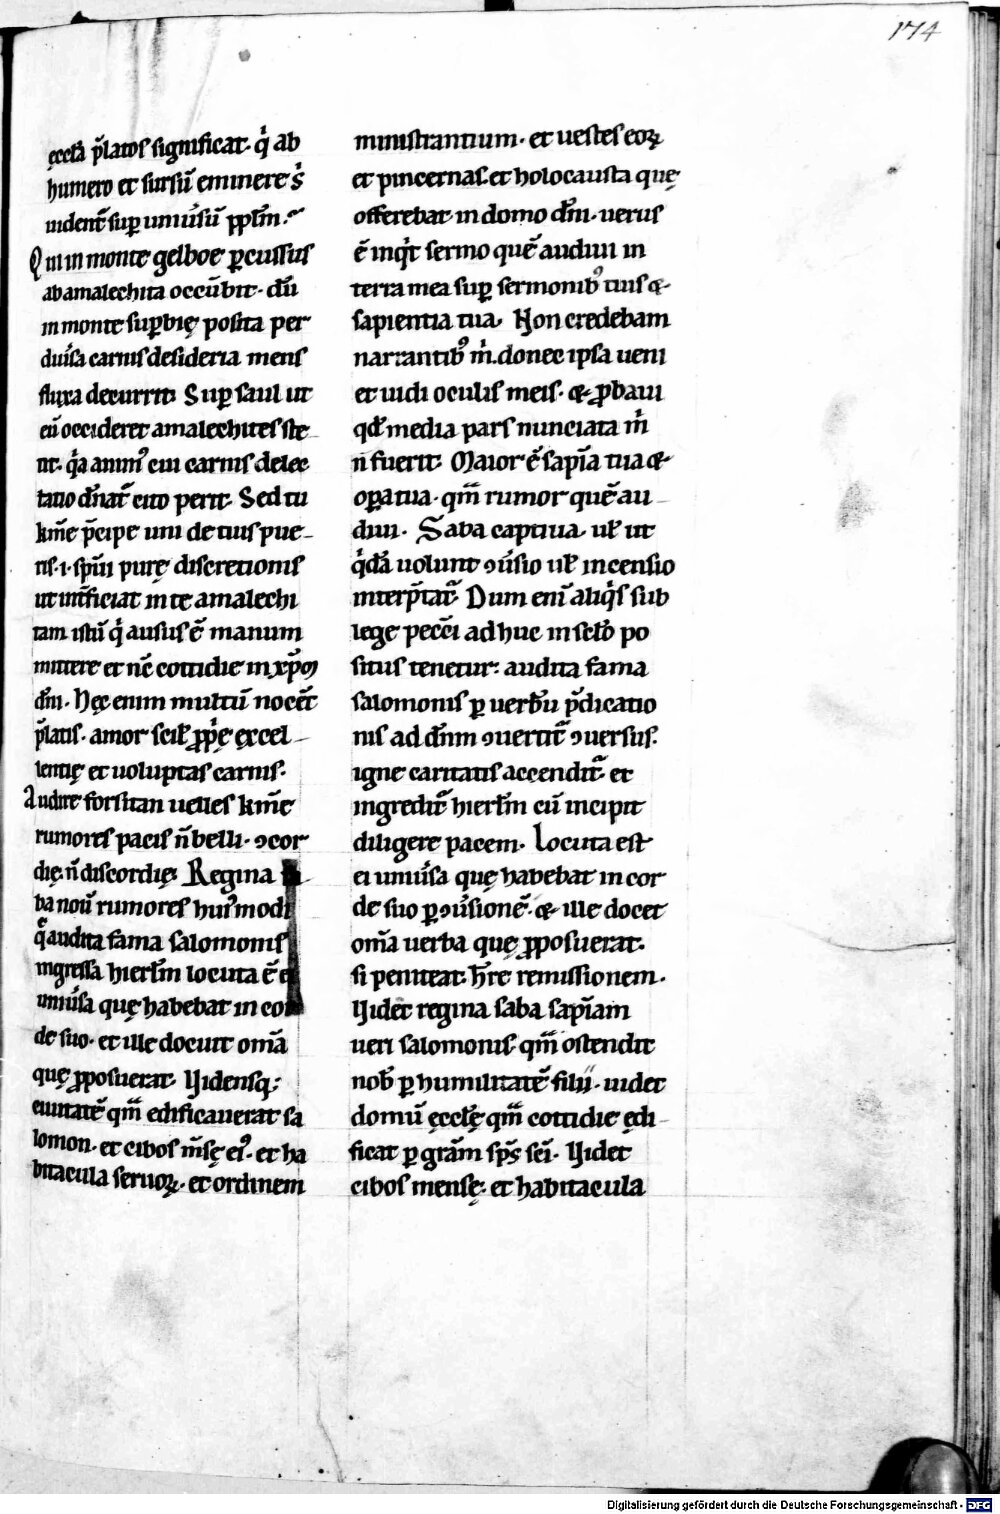 174
ęccłā p̄latos significat. qͥ ab
humero et sursū eminere sͥ
uident̄ suꝑ uniūsū ꝓplm̄.
Qui in monte gelboe ꝑcussus
ab amalechita occūbit. dū
in monte suꝑbię posita per
diuísa carnis desideria mens
fluxa decurrit. Suꝑ saul ut
eū occideret amalechites ste-
tit. qͥa animꝰ cui carnis delec
tatio dn̄at̄ cito perit. Sed tu
km̄e p̄cipe uni de tuis pue-
ris .i. spūi purę discretionis
ut int̄ficiat in te amalechi
tam istū qͥ ausus ē manum
mittere et nē cottidie in xp̄m
dn̄i. Hęc enim multū nocēt
p̄latis. amor scił ꝓpͥę excel-
lentię et uoluptas carnis.
Audire forsitan uelles km̄e
rumores pacis n̄ belli. ɔcor
dię n̄ discordię. Regina sa-
ba nouū rumores huiꝰmodi
q̄ audita fama salomonis
ingressa hierłm locuta ē ei
uniūsa quę habebat in cor
de suo. et ille docuit om̄a
quę ꝓposuerat. Uidensq;
ciuitatē qm̄ edificauerat sa
lomon. et cibos m̄sę eiꝰ. et ha
bitacula seruoꝝ. et ordinem
ministrantium. et uestes eoꝝ
et pincernas. et holocausta quę
offerebat in domo dn̄i. uerus
ē inqͥt sermo quē audiui in
terra mea suꝑ sermonibꝰ tuis &
sapientia tua. Non credebam
narrantibꝰ m̊. donec ipsa ueni
et uidi oculis meis. & ꝓbaui
qd̄ media pars nunciata mͥ
n̄ fuerit. Maior ē sapīa tua &
oꝑa tua. qm̄ rumor quē au-
diui. Saba captiua. uł ut
qͥdā uolunt ɔūsio uł incensio
interp̄tat̄. Dum eni aliqͥs sub
lege peccī adhuc in scło po
situs tenetur: audita fama
salomonis ꝑ uerbū p̄dicatio
nis ad dn̄m ɔuertit̄ ɔuersus.
igne caritatis accendit̄. et
ingredit̄ hierłm cū incipit
diligere pacem. Locuta est
ei uniūsa quę habebat in cor
de suo ꝑ ɔūsionē. & ille docet
om̄a uerba quę ꝓposuerat.
si peniteat. hr̄e remissionem.
Uidet regina saba sapīam
ueri salomonis. qm̄ ostendit
nob̄ ꝑ humilitatē filii. uidet
domū ęccłę qm̄ cottidie ędi-
ficat ꝑ grām sp̄s sc̄i. Uidet
cibos mensę. et habitacula
Digitalisierung gefördert durch die Deutsche Forschungsgemeinschaft - DFG